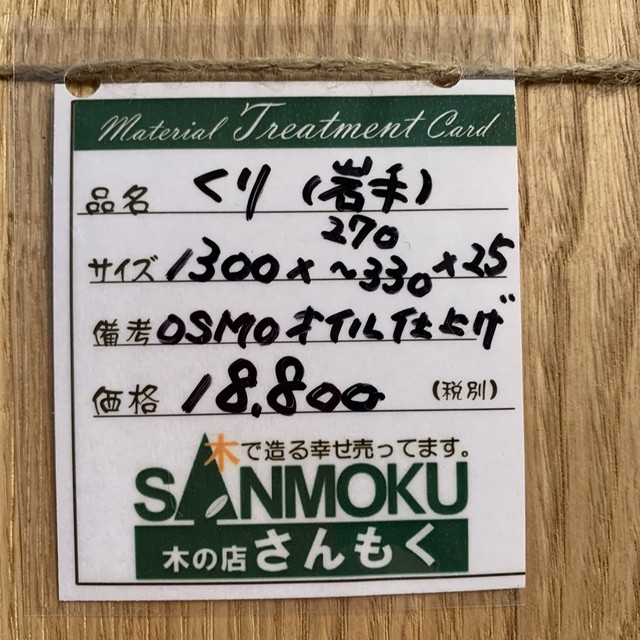 Material Treatment Card
品名 くり (岩手)
サイズ 1300 × 270~330 × 25
備考 OSMOオイル仕上げ
価格 18,800 (税別)
木で造る幸せ売ってます。
SANMOKU
木の店 さんもく